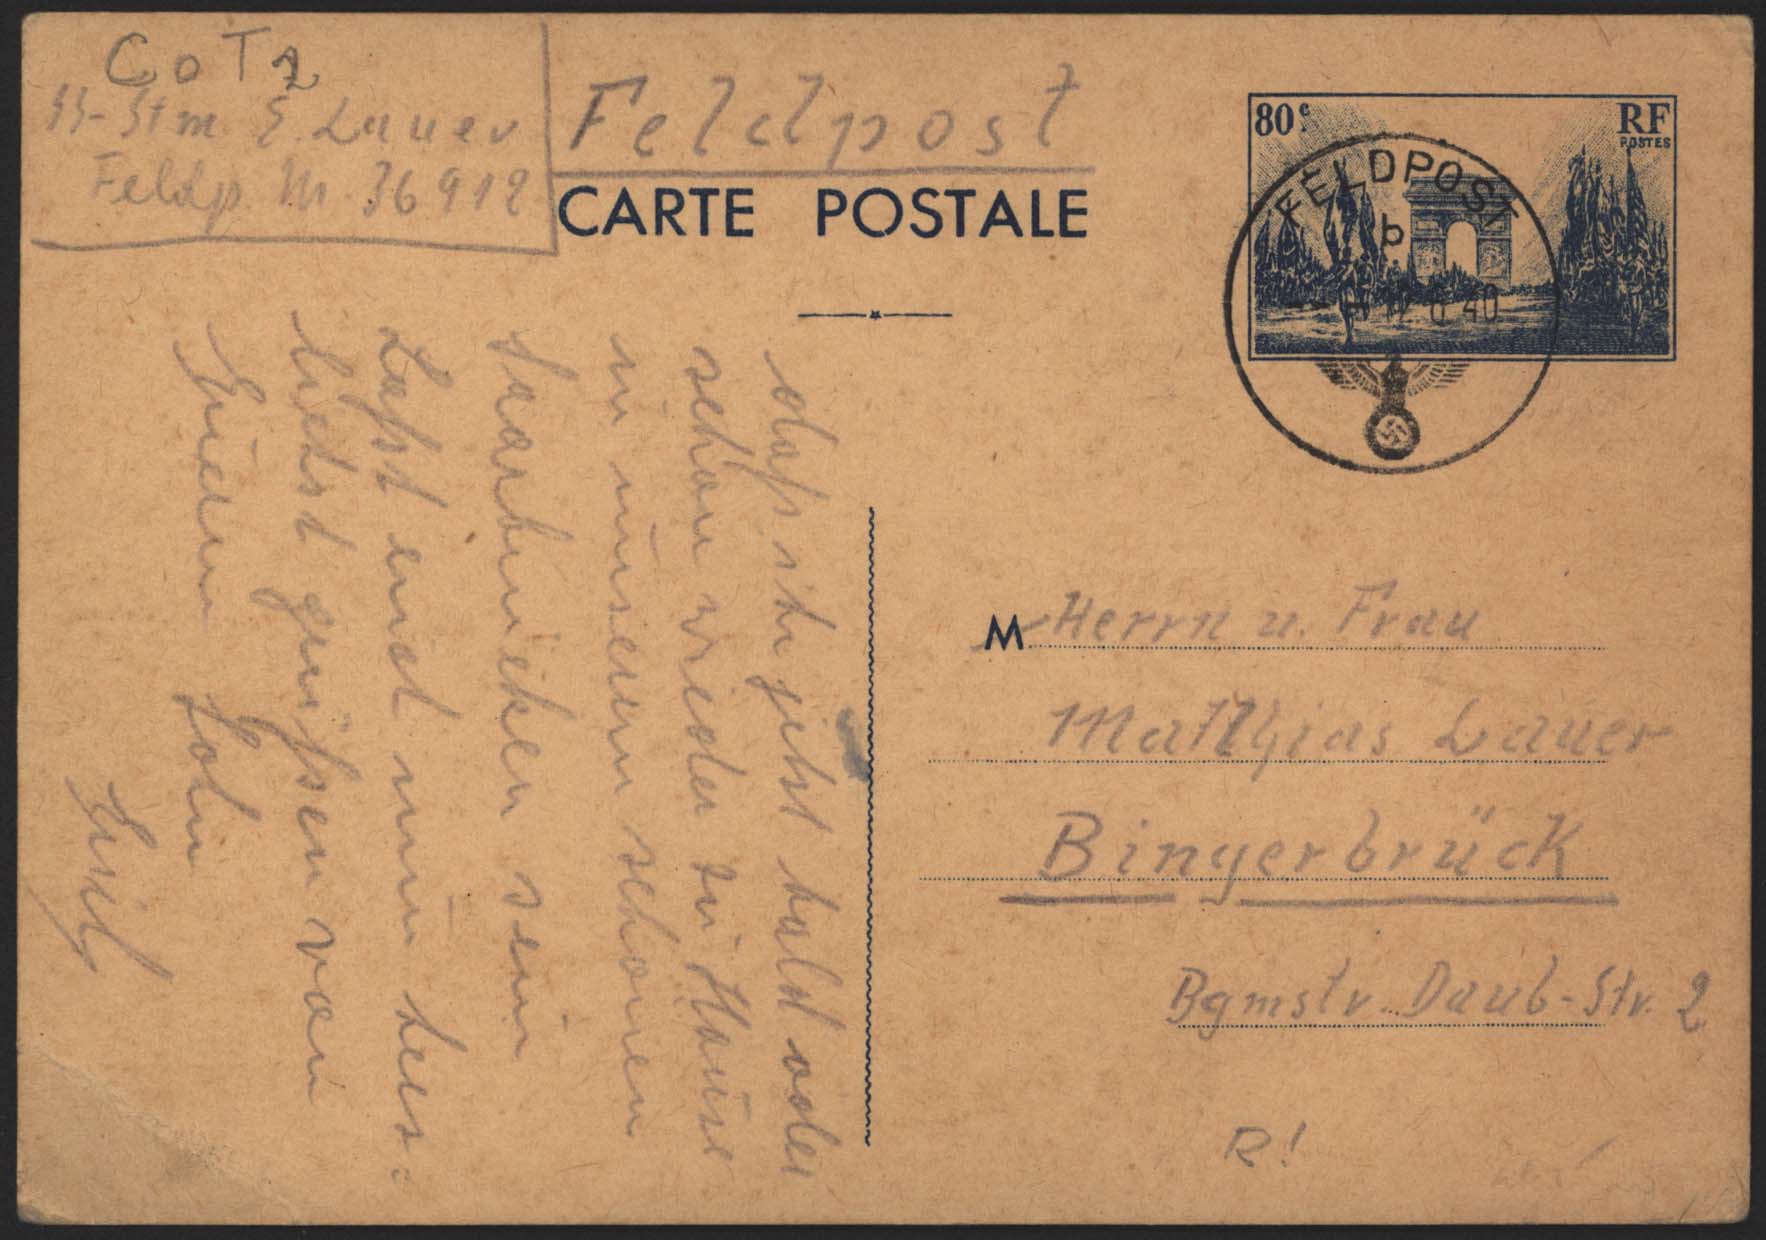 CoT 2
SS-Stm. E. Lauer
Feldp. Nr. 36912
Feldpost
CARTE POSTALE
80 c.
RF
POSTES
FELDPOST
b
6 40
daß ich jetzt bald oder
schon wieder zu Hause
in unserem schönen
Saarbrücken sein
Laßt euch nun herz-
lichst grüßen von
Eurem Sohn
M Herrn u. Frau
Matthias Lauer
Bingerbrück
Bgmstr. Daub-Str. 2
R!